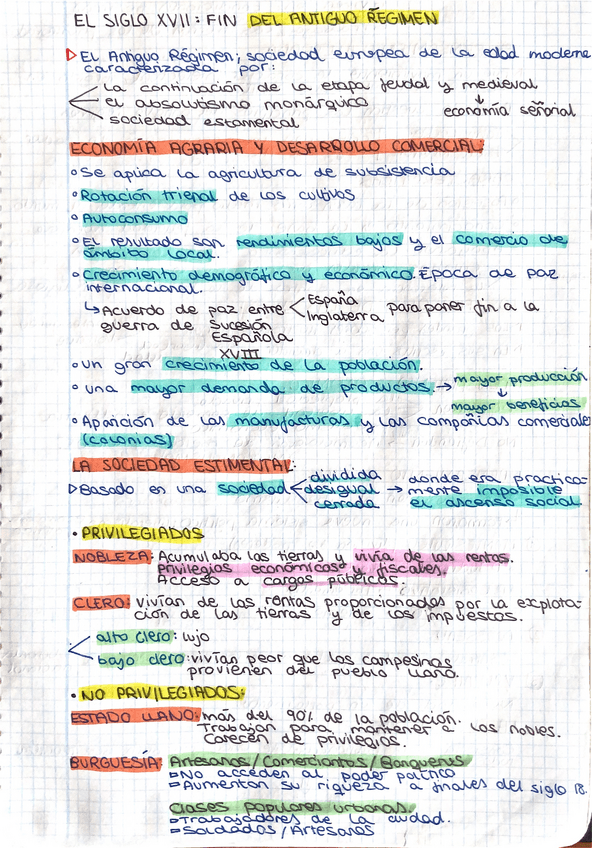 EL SIGLO XVII: FIN DEL ANTIGUO RÉGIMEN
El Antiguo Régimen; sociedad europea de la edad moderna
caracterizada por:
la continuación de la etapa feudal y medieval
el absolutismo monárquico
economía señorial
sociedad estamental
ECONOMÍA AGRARIA Y DESARROLLO COMERCIAL:
Se aplica la agricultura de subsistencia
Rotación trienal de los cultivos
Autoconsumo
El resultado son rendimientos bajos y el comercio de
ámbito local.
Crecimiento demográfico y económico. Época de paz
internacional.
↳ Acuerdo de paz entre España
Inglaterra para poner fin a la
guerra de Sucesión
Española
XVIII
Un gran crecimiento de la población.
una mayor demanda de productos. → mayor producción
↓
mayor beneficios
Aparición de las manufacturas y las compañías comerciales
(colonias)
LA SOCIEDAD ESTIMENTAL:
Basado en una sociedad dividida
desigual
cerrada → donde era practica-
mente imposible
el ascenso social.
• PRIVILEGIADOS
NOBLEZA: Acumulaba las tierras y vivía de las rentas.
Privilegios económicos y fiscales.
Acceso a cargos públicos.
CLERO: vivían de las rentas proporcionados por la explota-
ción de las tierras y de los impuestos.
alto clero: lujo
bajo clero: vivían peor que los campesinos
provienen del pueblo llano.
• NO PRIVILEGIADOS:
ESTADO LLANO: más del 90% de la población.
Trabajan para mantener a los nobles.
Carecen de privilegios.
BURGUESÍA: Artesanos/Comerciantes/Banqueros
No acceden al poder político
Aumentan su riqueza a finales del siglo 18.
Clases populares urbanas.
Trabajadores de la ciudad.
Soldados/Artesanos